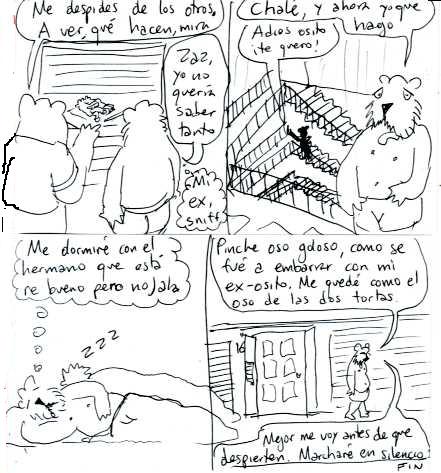 Me despides de los otros,
A ver, qué hacen, mira
Zaz,
yo no
quería
saber
tanto
Mi
ex,
sniff
Chale, y ahora yo que
hago
Adios osito
¡te quero!
Me dormiré con el
hermano que está
re bueno pero no jala
ZZZ
Pinche oso goloso, como se
fué a embarrar con mi
ex-osito. Me quedé como el
oso de las dos tortas.
16
Mejor me voy antes de que
despierten. Marcharé en silencio
FIN